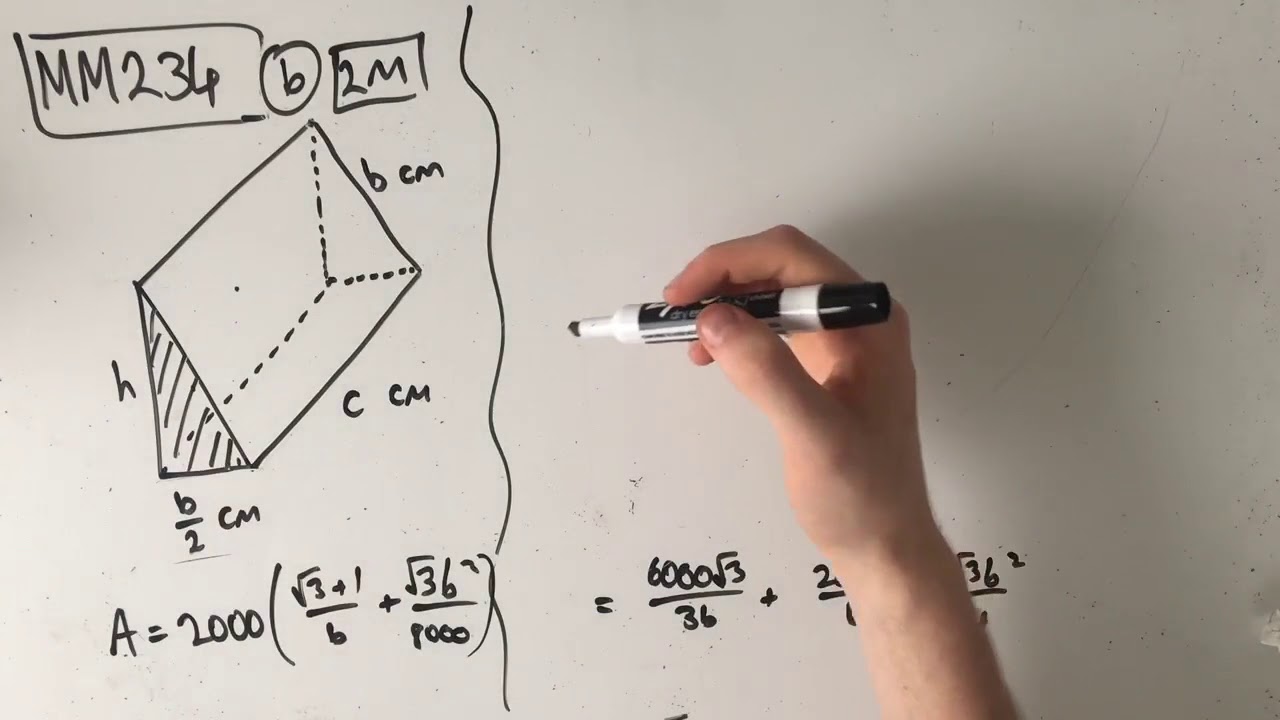 MM234 b 2M
b cm
h
c cm
b/2 cm
A = 2000(√3+1/b + √3b²/8000) = 6000√3/3b +